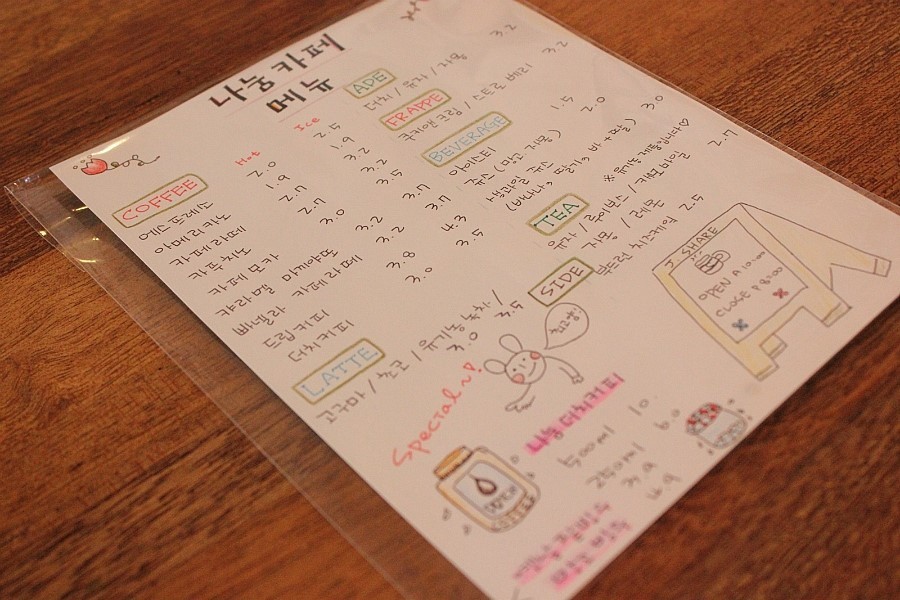 나눔카페
메뉴
Hot Ice
COFFEE
에스프레소 2.0 2.5
아메리카노 1.9 1.9
카페라떼 2.7 3.2
카푸치노 2.7 3.2
카페 모카 3.0 3.5
캬라멜 마끼아또 3.2 3.7
바닐라 카페라떼 3.2 3.7
드립커피 3.8 4.3
더치커피 3.0 3.5
LATTE
고구마 / 초코 / 유기농녹차 /
3.0 3.5
ADE
유자 / 자몽 3.2
FRAPPE
쿠키앤크림 / 스트로베리 3.2
BEVERAGE
아이스티 1.5
쥬스 (망고, 자몽) 2.0
생과일 쥬스 3.0
(바나나, 딸기, 바+딸)
※유기농제품입니다♡
TEA
유자 / 루이보스 / 캐모마일 2.7
자몽 / 레몬
SIDE
치즈케익 2.5
J. SHARE
OPEN A 10:00
CLOSE P 8:00
Special~!
나눔더치커피
500ml 10.
250ml 6.0
3.9
4.9